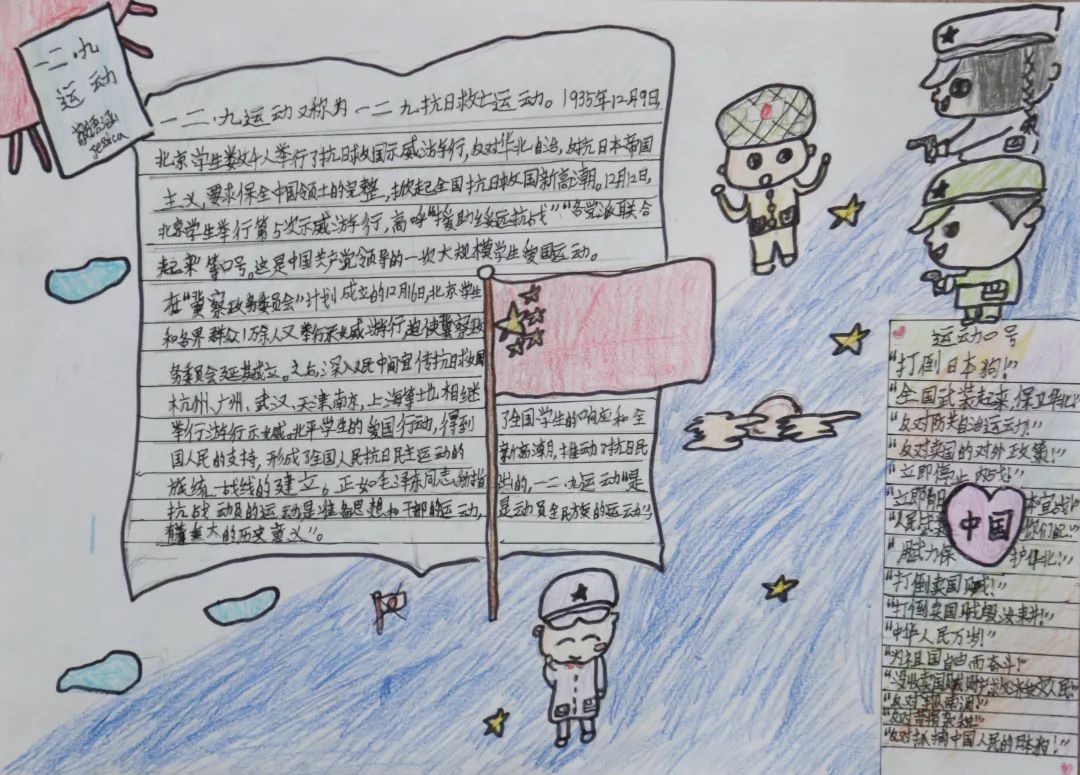 一二·九
运动
Jessica
一二·九运动又称为一二九抗日救亡运动。1935年12月9日
北京学生数千人举行了抗日救国示威游行,反对华北自治,反抗日本帝国
主义,要求保全中国领土的完整,掀起全国抗日救国新高潮。12月12日,
北京学生举行第5次示威游行,高呼“援助绥远抗战”“各党派联合
起来”等口号。这是中国共产党领导的一次大规模学生爱国运动。
在“冀察政务委员会”计划成立的12月16日,北京学生
和各界群众1万余人又举行示威游行,迫使冀察政
务委员会延其成立。之后,深入人民中间宣传抗日救国
杭州、广州、武汉、天津、南京、上海等地相继
举行游行示威。北平学生的爱国行动,得到了全国学生的响应和全
国人民的支持,形成了全国人民抗日民主运动的新高潮,推动了抗日民
族统一战线的建立。正如毛泽东同志所指出的,一二·九运动“是
抗战动员的运动是准备思想和干部的运动,是动员全民族的运动
有着重大的历史意义”。
运动口号
“打倒日本狗!”
“全国武装起来,保卫华北
“反对防共自治运动!”
“反对卖国的对外政策!”
“立即停止内战!”
“立即 本宣战!”
“人民 你们吧!”
“ 力保 护华北!”
中国
“打倒卖国贼!”
“打倒卖国贼
“中华人民万岁!”
“为祖国自由而奋斗!”
“没收卖国贼财 人民”
“反对
“反对苛捐杂税!”
“反对抓捕中国人民的日本狗!”